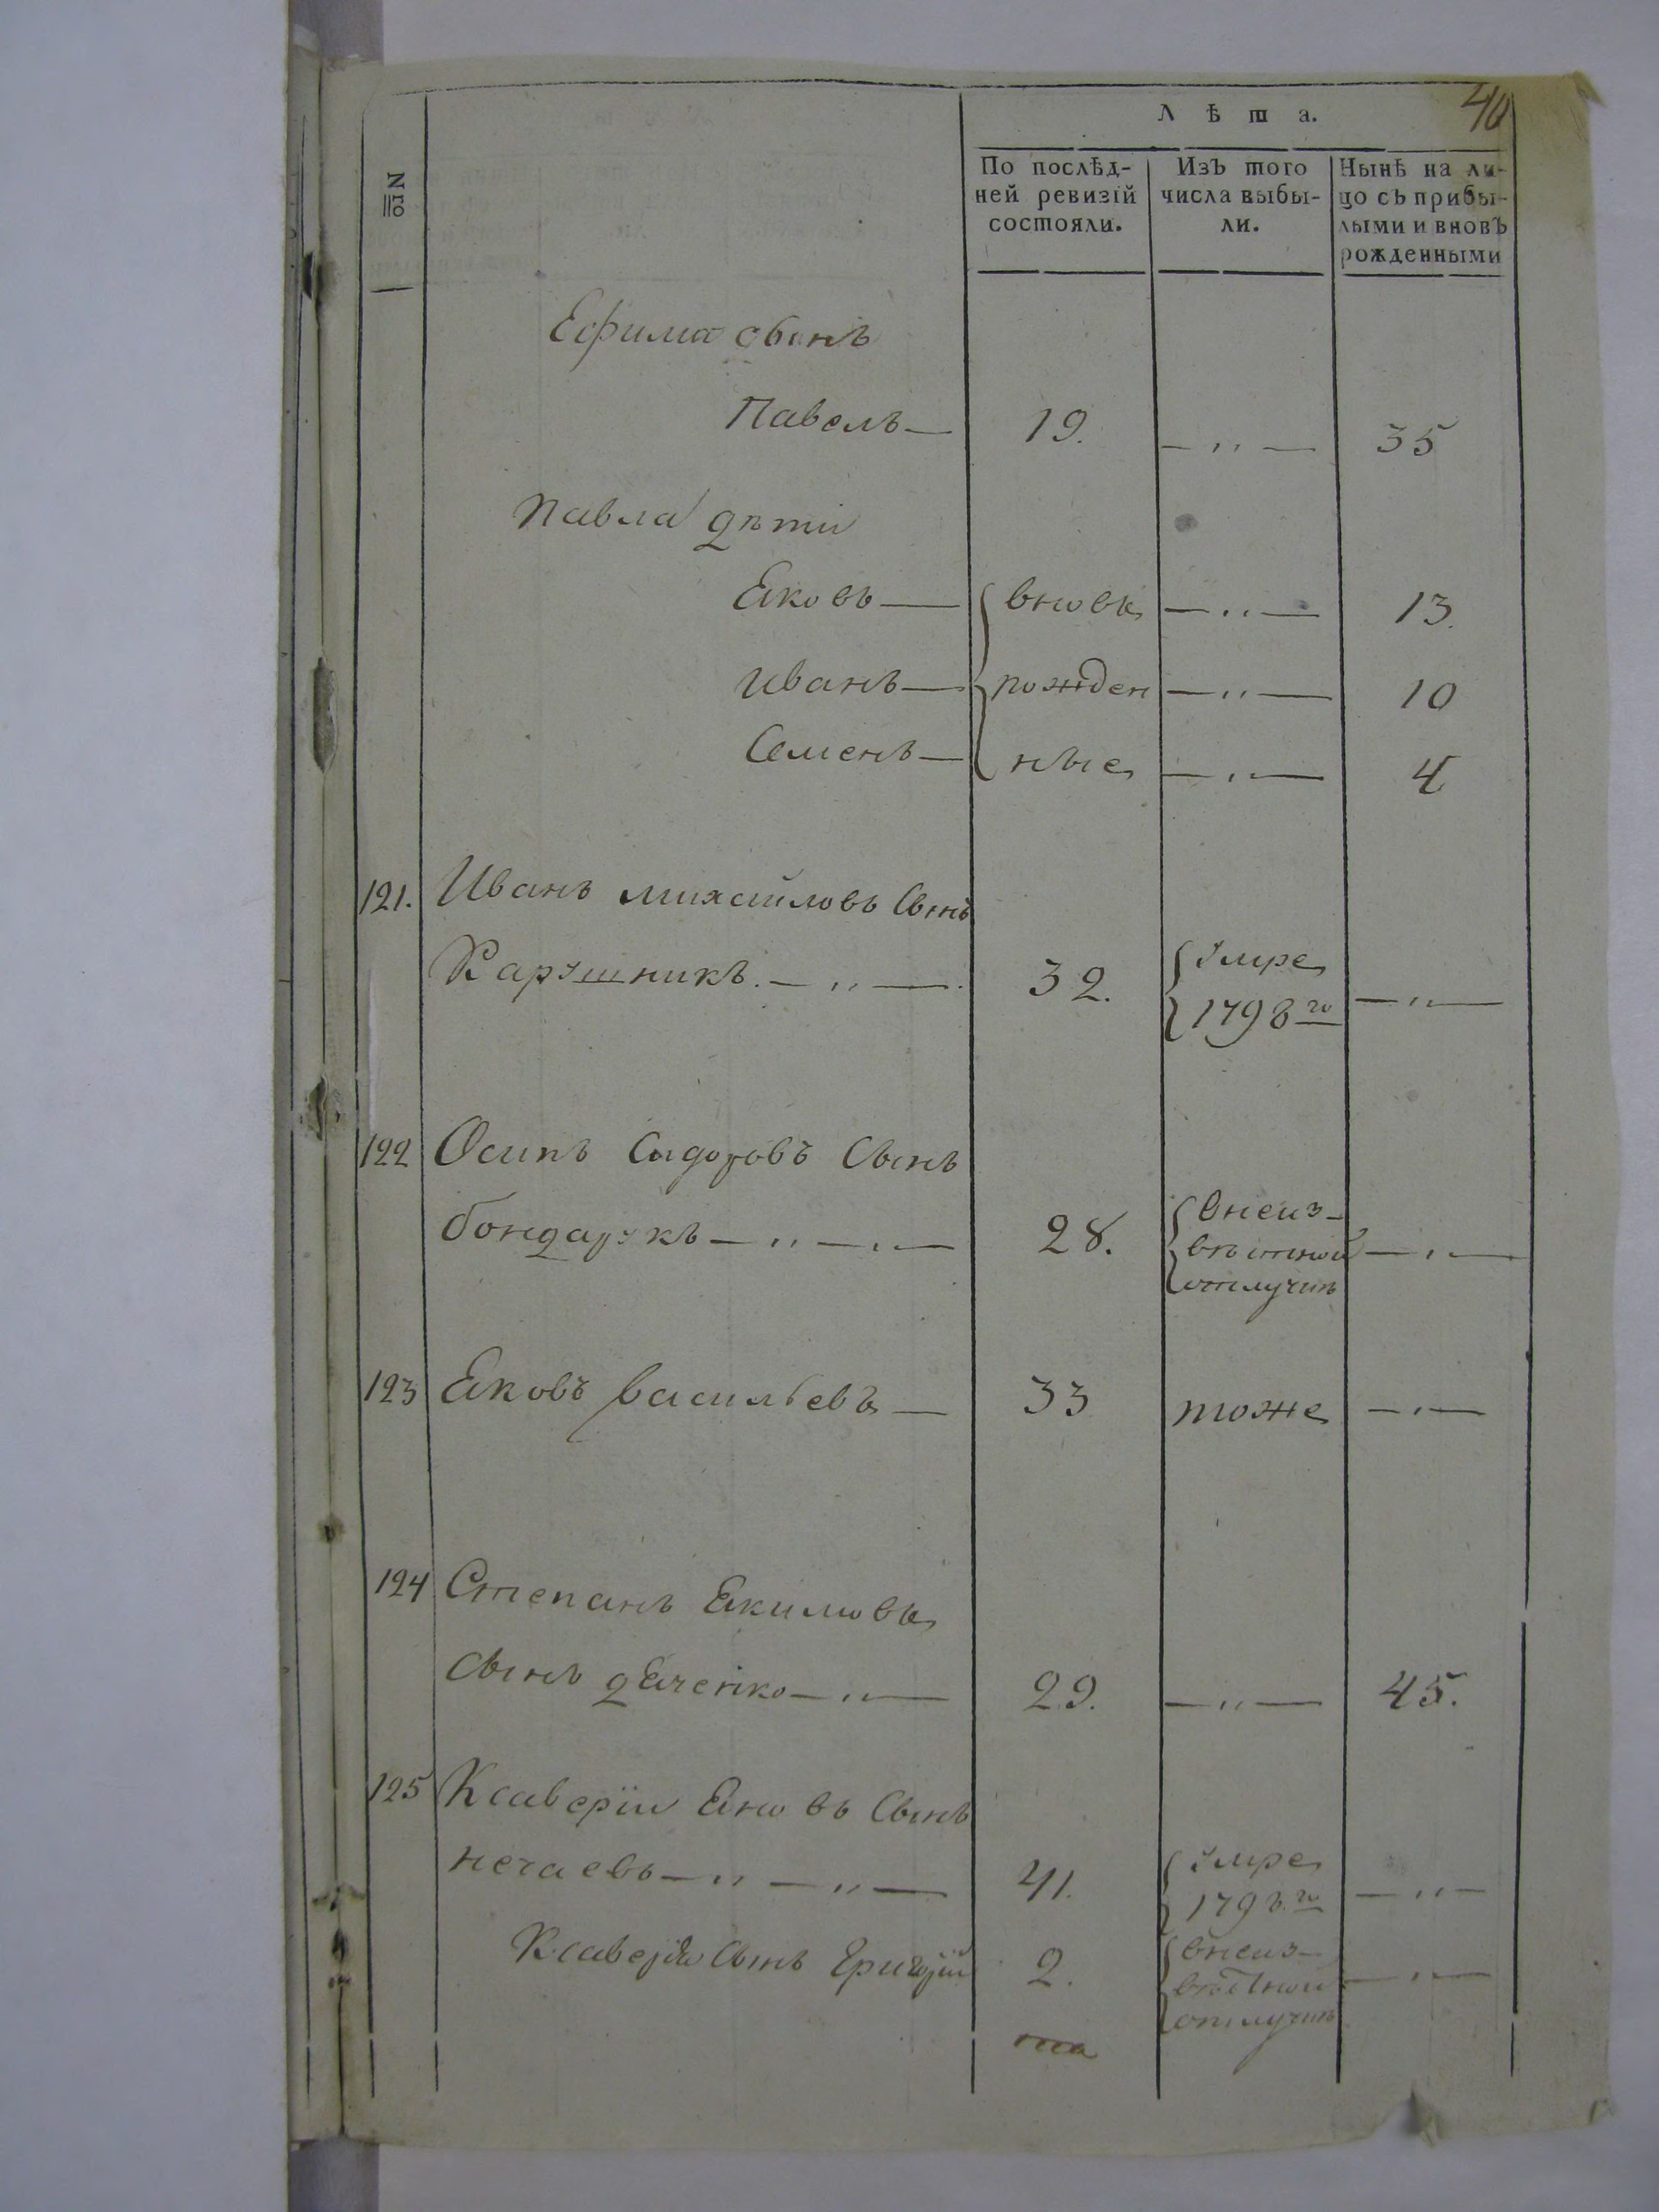 40
№
Лѣта.
По послѣд-
ней ревизїй
состояли.
Изъ того
числа выбы-
ли.
Нынѣ на ли-
цо съ прибы-
лыми и вновъ
рожденными
Ефима сынъ
Павелъ — 19. — „ — 35
Павла дѣти
Еяковъ — вновь — „ — 13.
Иванъ — рожден — „ — 10
Семенъ — ные — „ — 4
121. Иванъ михайловъ Сынъ
умре
Карушникъ. — „ — 32. 1798го — „ —
122 Осипъ Сидоровъ Сынъ
внеиз-
бондарукъ — „ — „ — 28. вѣстной — „ —
отлучкѣ
123 Еяковъ васильевъ — 33 тоже — „ —
124 Степанъ Еякимовъ
Сынъ дЕяченко — „ — 29. — „ — 45.
125 Ксаверїи Еяновъ Сынъ
умре
нечаевъ — „ — „ — 41. 1798.го — „ —
внеиз-
Ксаверїя Сынъ Григорїй 2. вѣстной — „ —
отлучкѣ